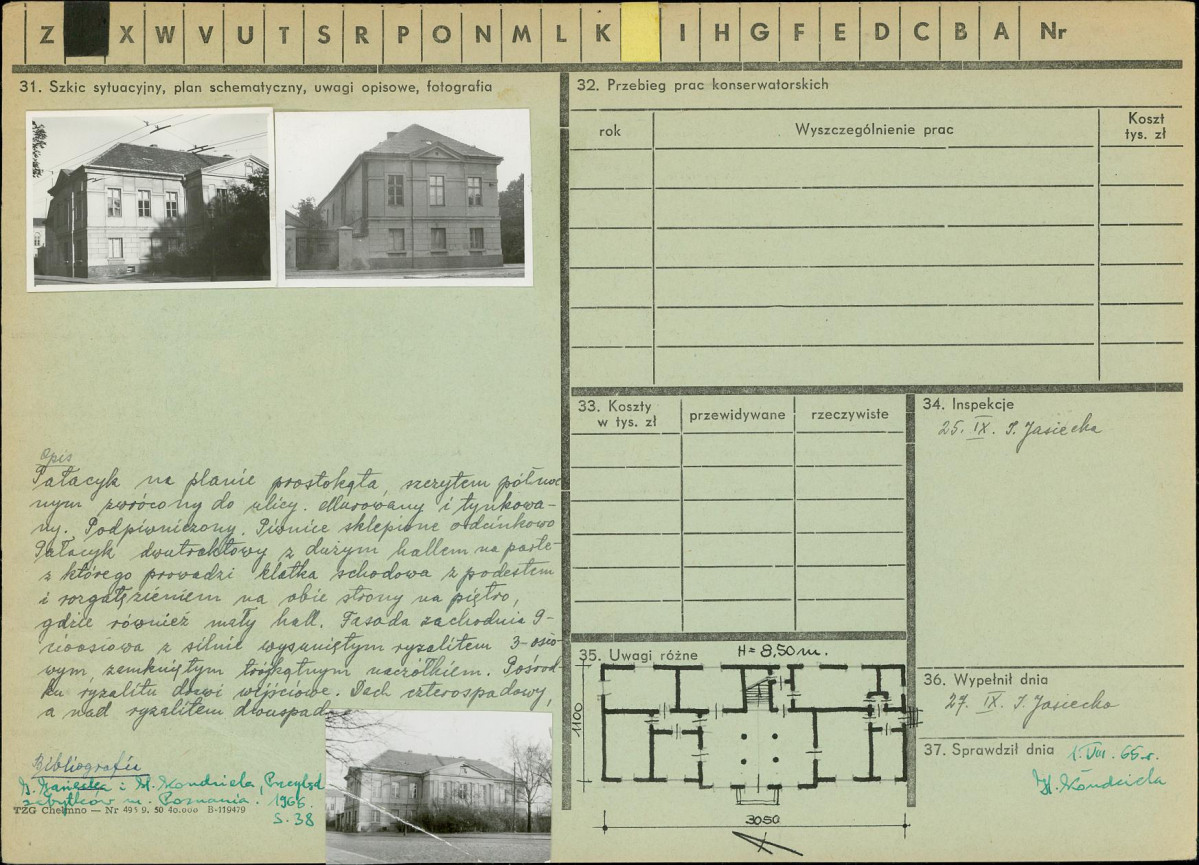 Z X W V U T S R P O N M L K I H G F E D C B A Nr
31. Szkic sytuacyjny, plan schematyczny, uwagi opisowe, fotografia
Opis
Pałacyk na planie prostokąta, szczytem północ
nym zwrócony do ulicy. Murowany i tynkowa-
ny. Podpiwniczony. Piwnice sklepione odcinkowo
Pałacyk dwutraktowy z dużym hallem na parte-
z którego prowadzi klatka schodowa z podestem
i rozgałęzieniem na obie strony na piętro,
gdzie również mały hall. Fasada zachodnia 9-
cioosiowa z silnie wysuniętym ryzalitem 3-osio
wym, zamkniętym trójkątnym naczółkiem. Pośrod
ku ryzalitu drzwi wejściowe. Dach czterospadowy,
a nad ryzalitem dwuspad
Bibliografia
i H. Kondziela, Przegląd
zabytków m. Poznania. 1965.
S. 38
TZG Chełmno — Nr 495 9. 50 40.000 B-119479
32. Przebieg prac konserwatorskich
rok Wyszczególnienie prac Koszt
tys. zł
33. Koszty
w tys. zł przewidywane rzeczywiste
34. Inspekcje
25. IX. J. Jasiecka
35. Uwagi różne
H = 8,50 m.
1100
3050
36. Wypełnił dnia
27. IX. J. Jasiecka
37. Sprawdził dnia 1. VIII. 65 r.
H. Kondziela